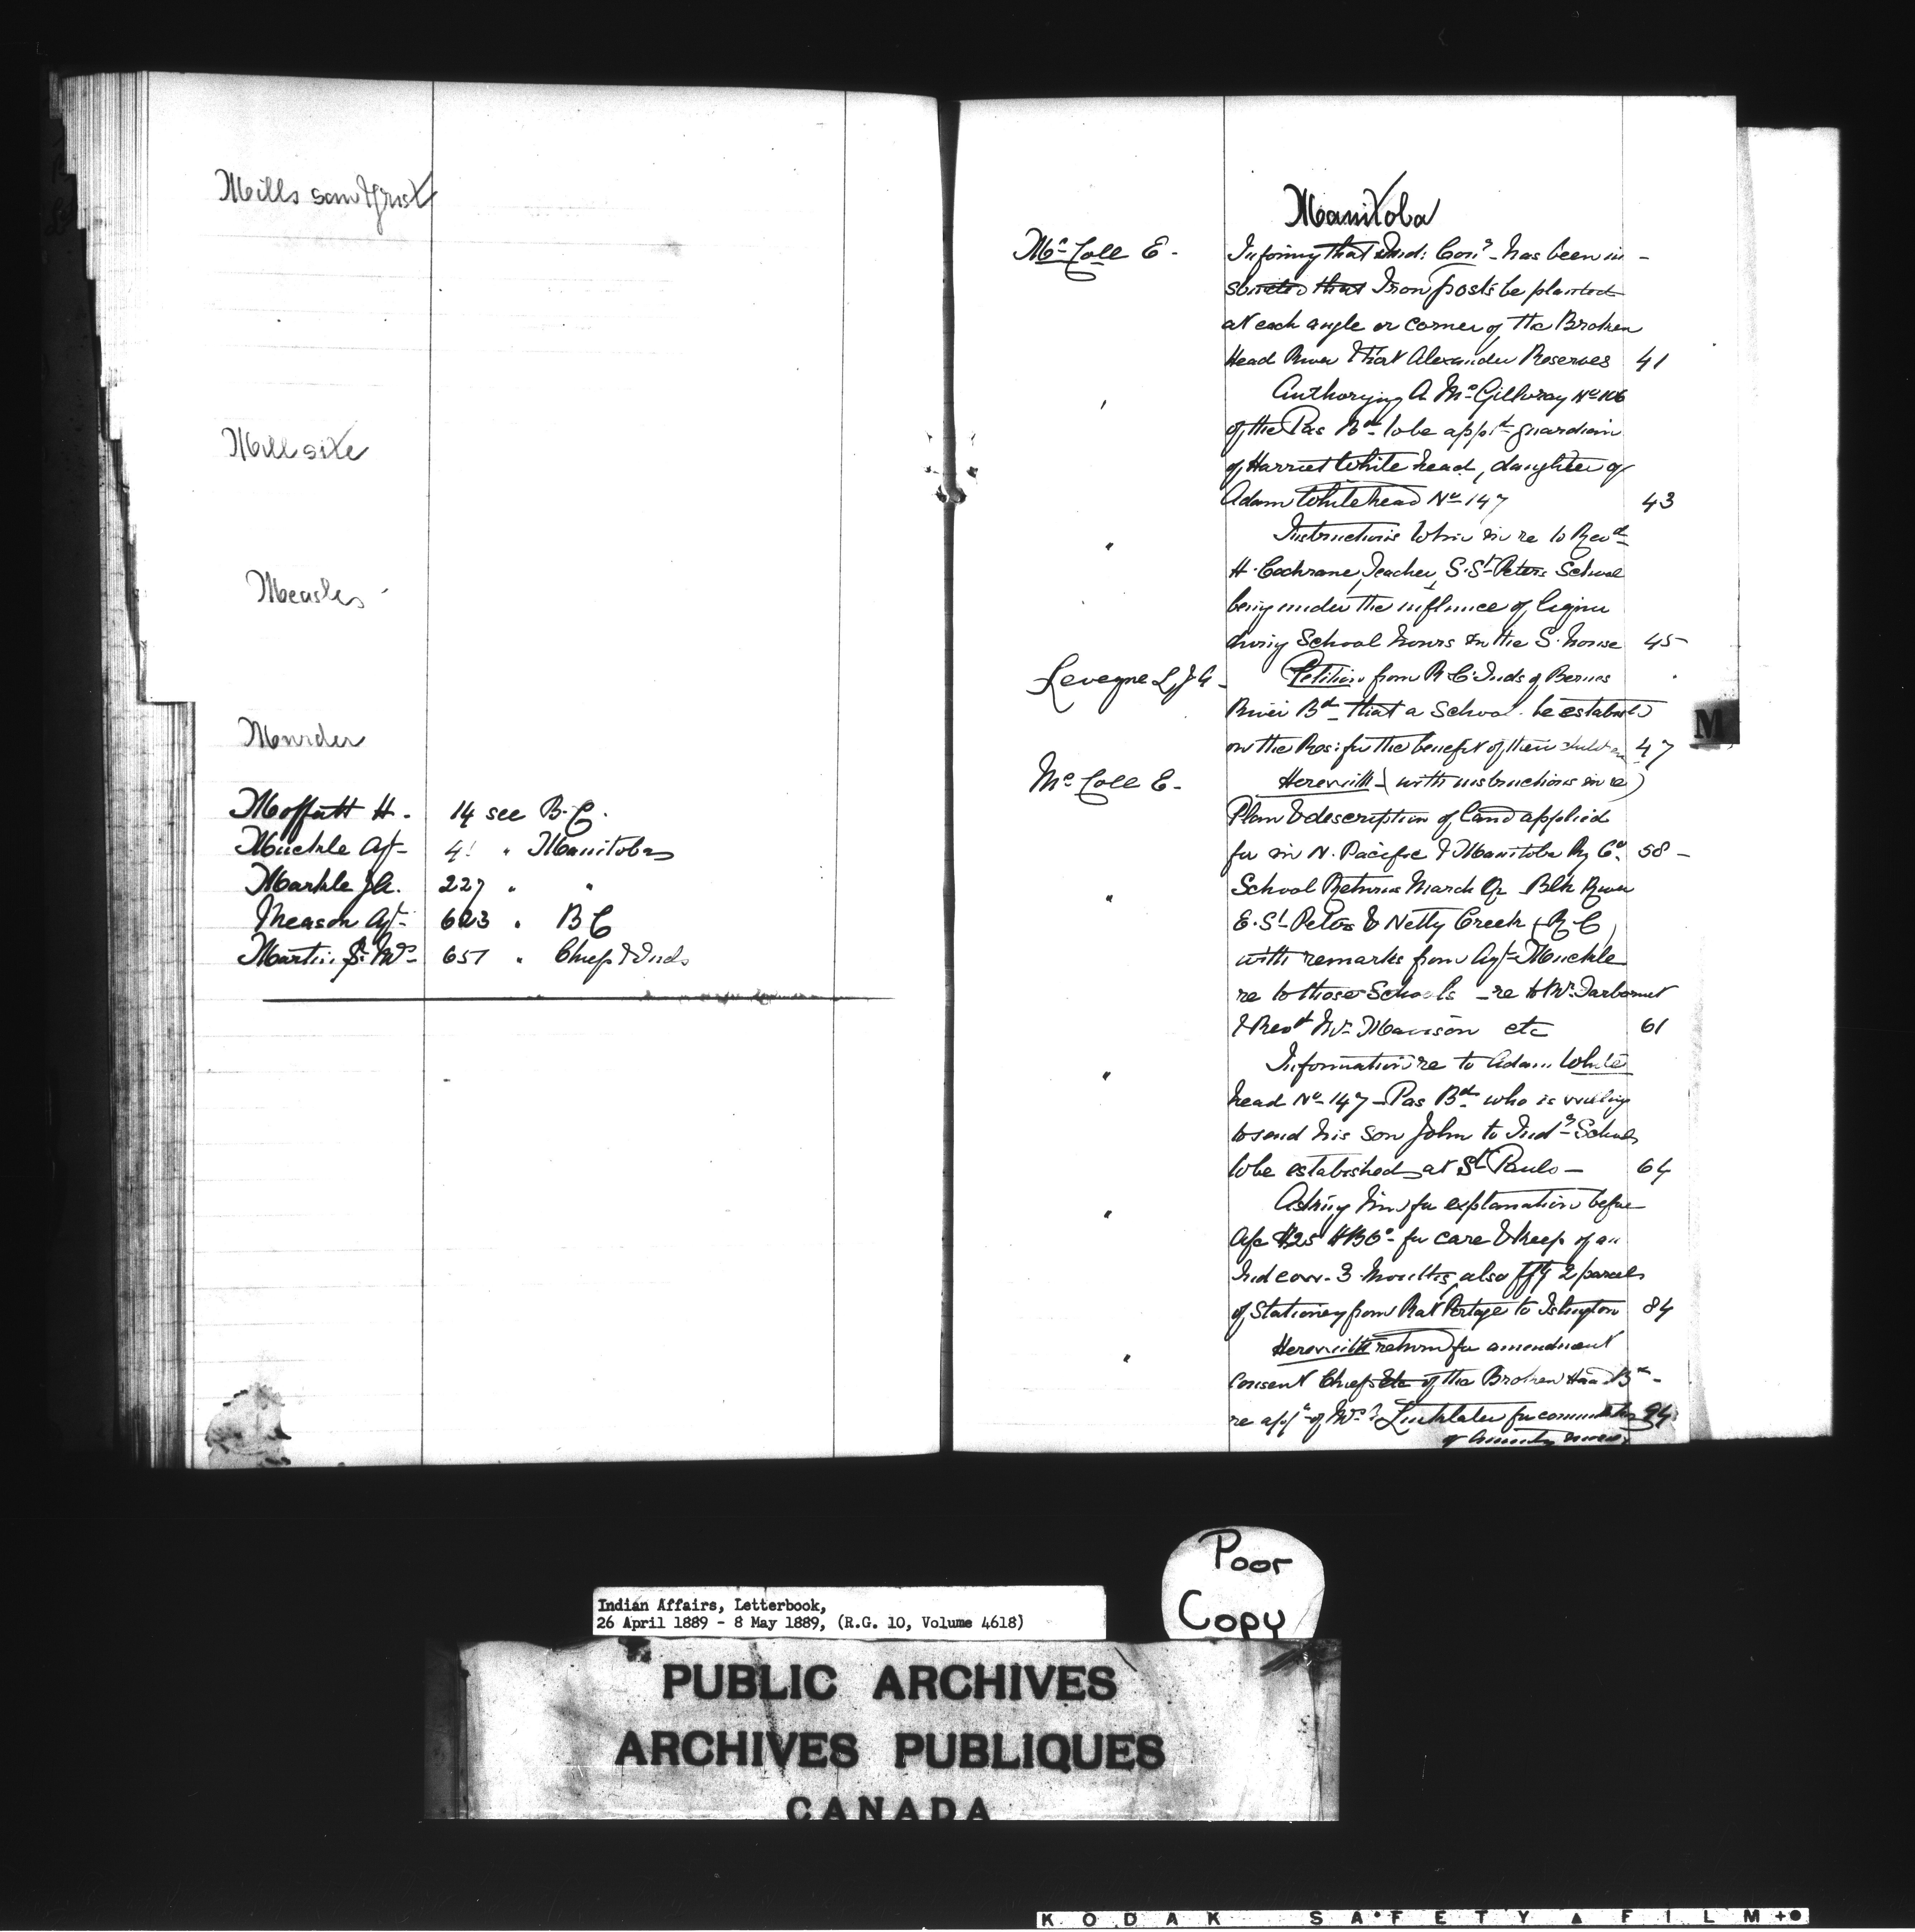 Mills saw & grist
Mill site
Measles
Murder
Moffatt H. 14 see B.C.
Muckle Agt 41 " Manitoba
Markle J.A. 227 " "
Meason Agt 623 " B C
Martin Mrs 651 " Chief & Inds
Manitoba
McColl E. Informg that Ind: Comr has been in-
structed that Iron posts be planted
at each angle or corner of the Broken
Head River & Fort Alexander Reserves 41
" Authorizing A McGilvray No 106
of the Pas Bd to be appd guardian
of Harriet Whitehead, daughter of
Adam Whitehead No 147 43
" Instructions in re to Revd
H. Cochrane, Teacher, S. St Peters School
being under the influence of liquor
during School hours in the S. house 45
Leveque L, J A Petition from R C Inds of Berens
River Bd that a School be establishd
on the Res: for the benefit of their children 47
McColl E. Herewith (with instructions in re)
Plan & description of land applied
for in N. Pacific & Manitoba Ry Co. 58
" School Returns March Qr Blk River
E. St Peters & Netly Creek (R C)
with remarks from Agt Muckle
re to those Schools - re to Mr
& Revd Mr etc 61
" Information re to Adam White
head No 147 Pas Bd who is willing
to send his son John to Indl School
to be established at St Pauls 64
" Asking him for explanation before
a/c $25 HBCo for care & keep of an
Ind cow. 3 months, also 2 parcels
of Stationery from Rat Portage to Islington 84
" Herewith return for amendment
Consent Chief etc of the Broken Head Bd
re appn of Mrs Linklater for commutation 94
of Annuity money
M
Poor
Copy
Indian Affairs, Letterbook,
26 April 1889 - 8 May 1889, (R.G. 10, Volume 4618)
PUBLIC ARCHIVES
ARCHIVES PUBLIQUES
CANADA
KODAK SAFETY FILM